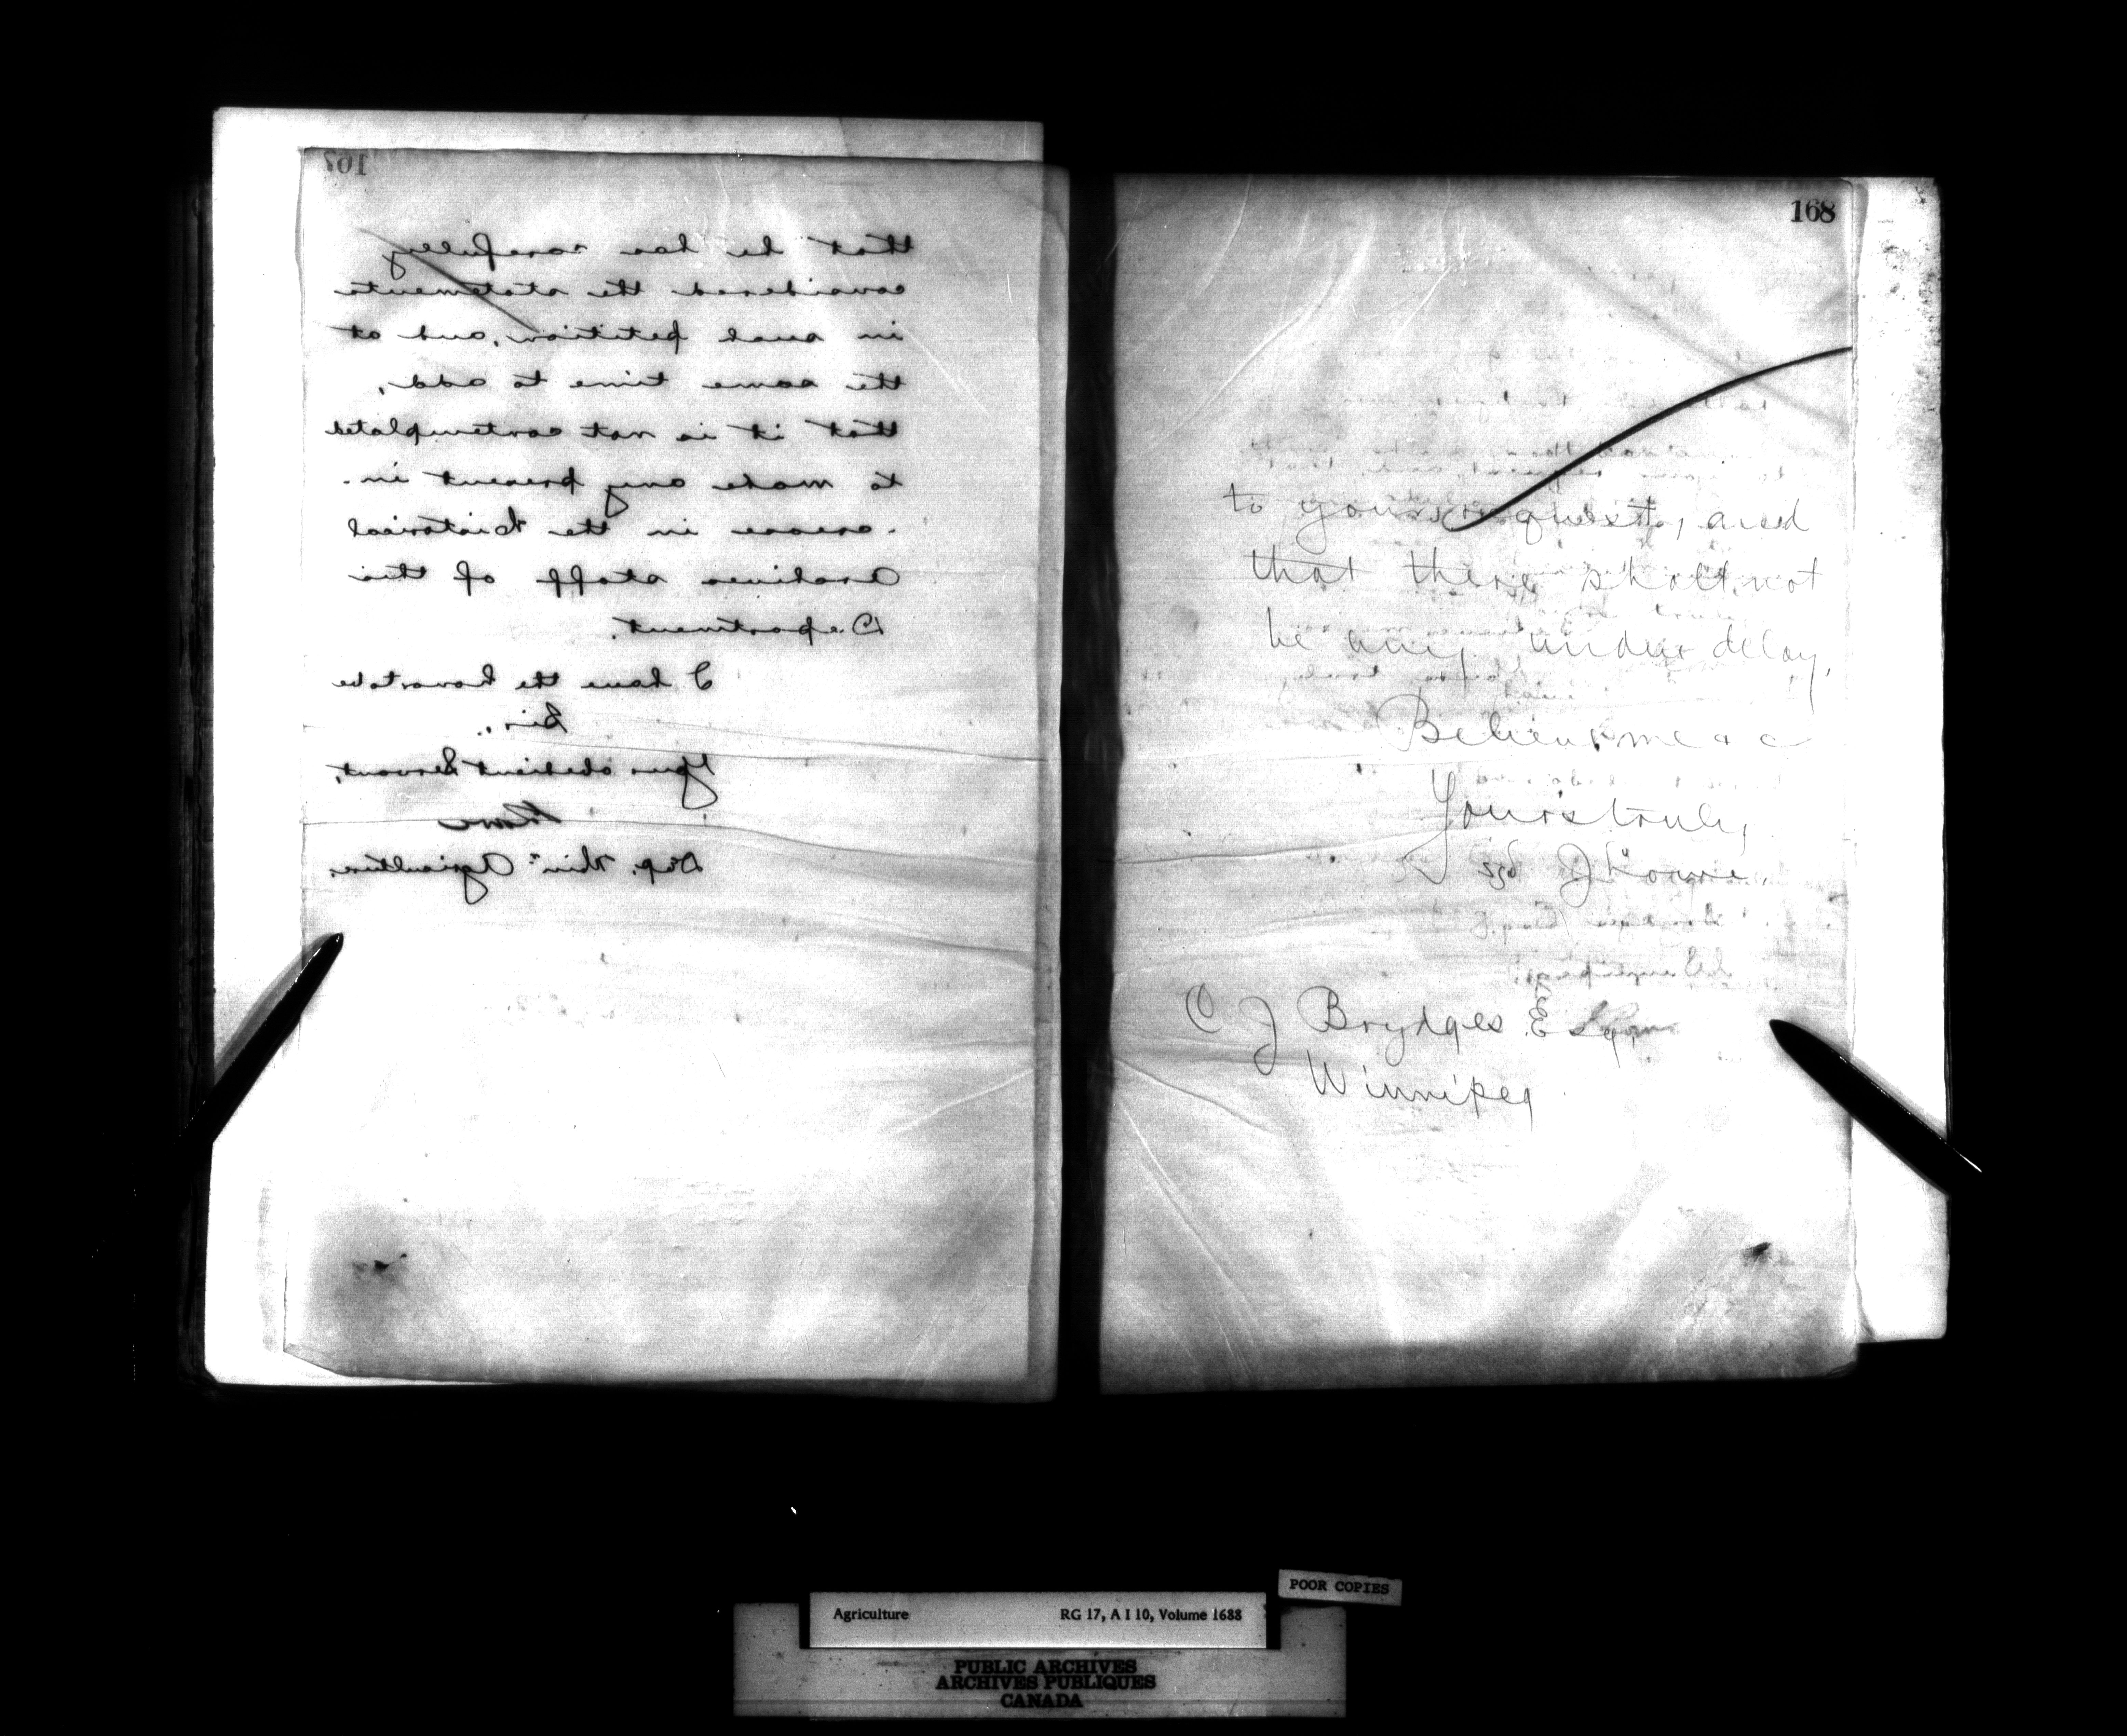 167
that he has carefully
considered the statements
in such petition, and, at
the same time to add,
that it is not contemplated
to make any present in-
-crease in the Historical
Archives staff of this
Department.
I have the honor to be
Sir,
Your obedient Servant,
Lowe
Dep. Minr. Agriculture.
168
to your request, and
that there shall not
be any undue delay,
Believe me & c
Yours truly
sgd J Lowe.
C J Brydges Esq.
Winnipeg
POOR COPIES
Agriculture RG 17, A I 10, Volume 1688
PUBLIC ARCHIVES
ARCHIVES PUBLIQUES
CANADA